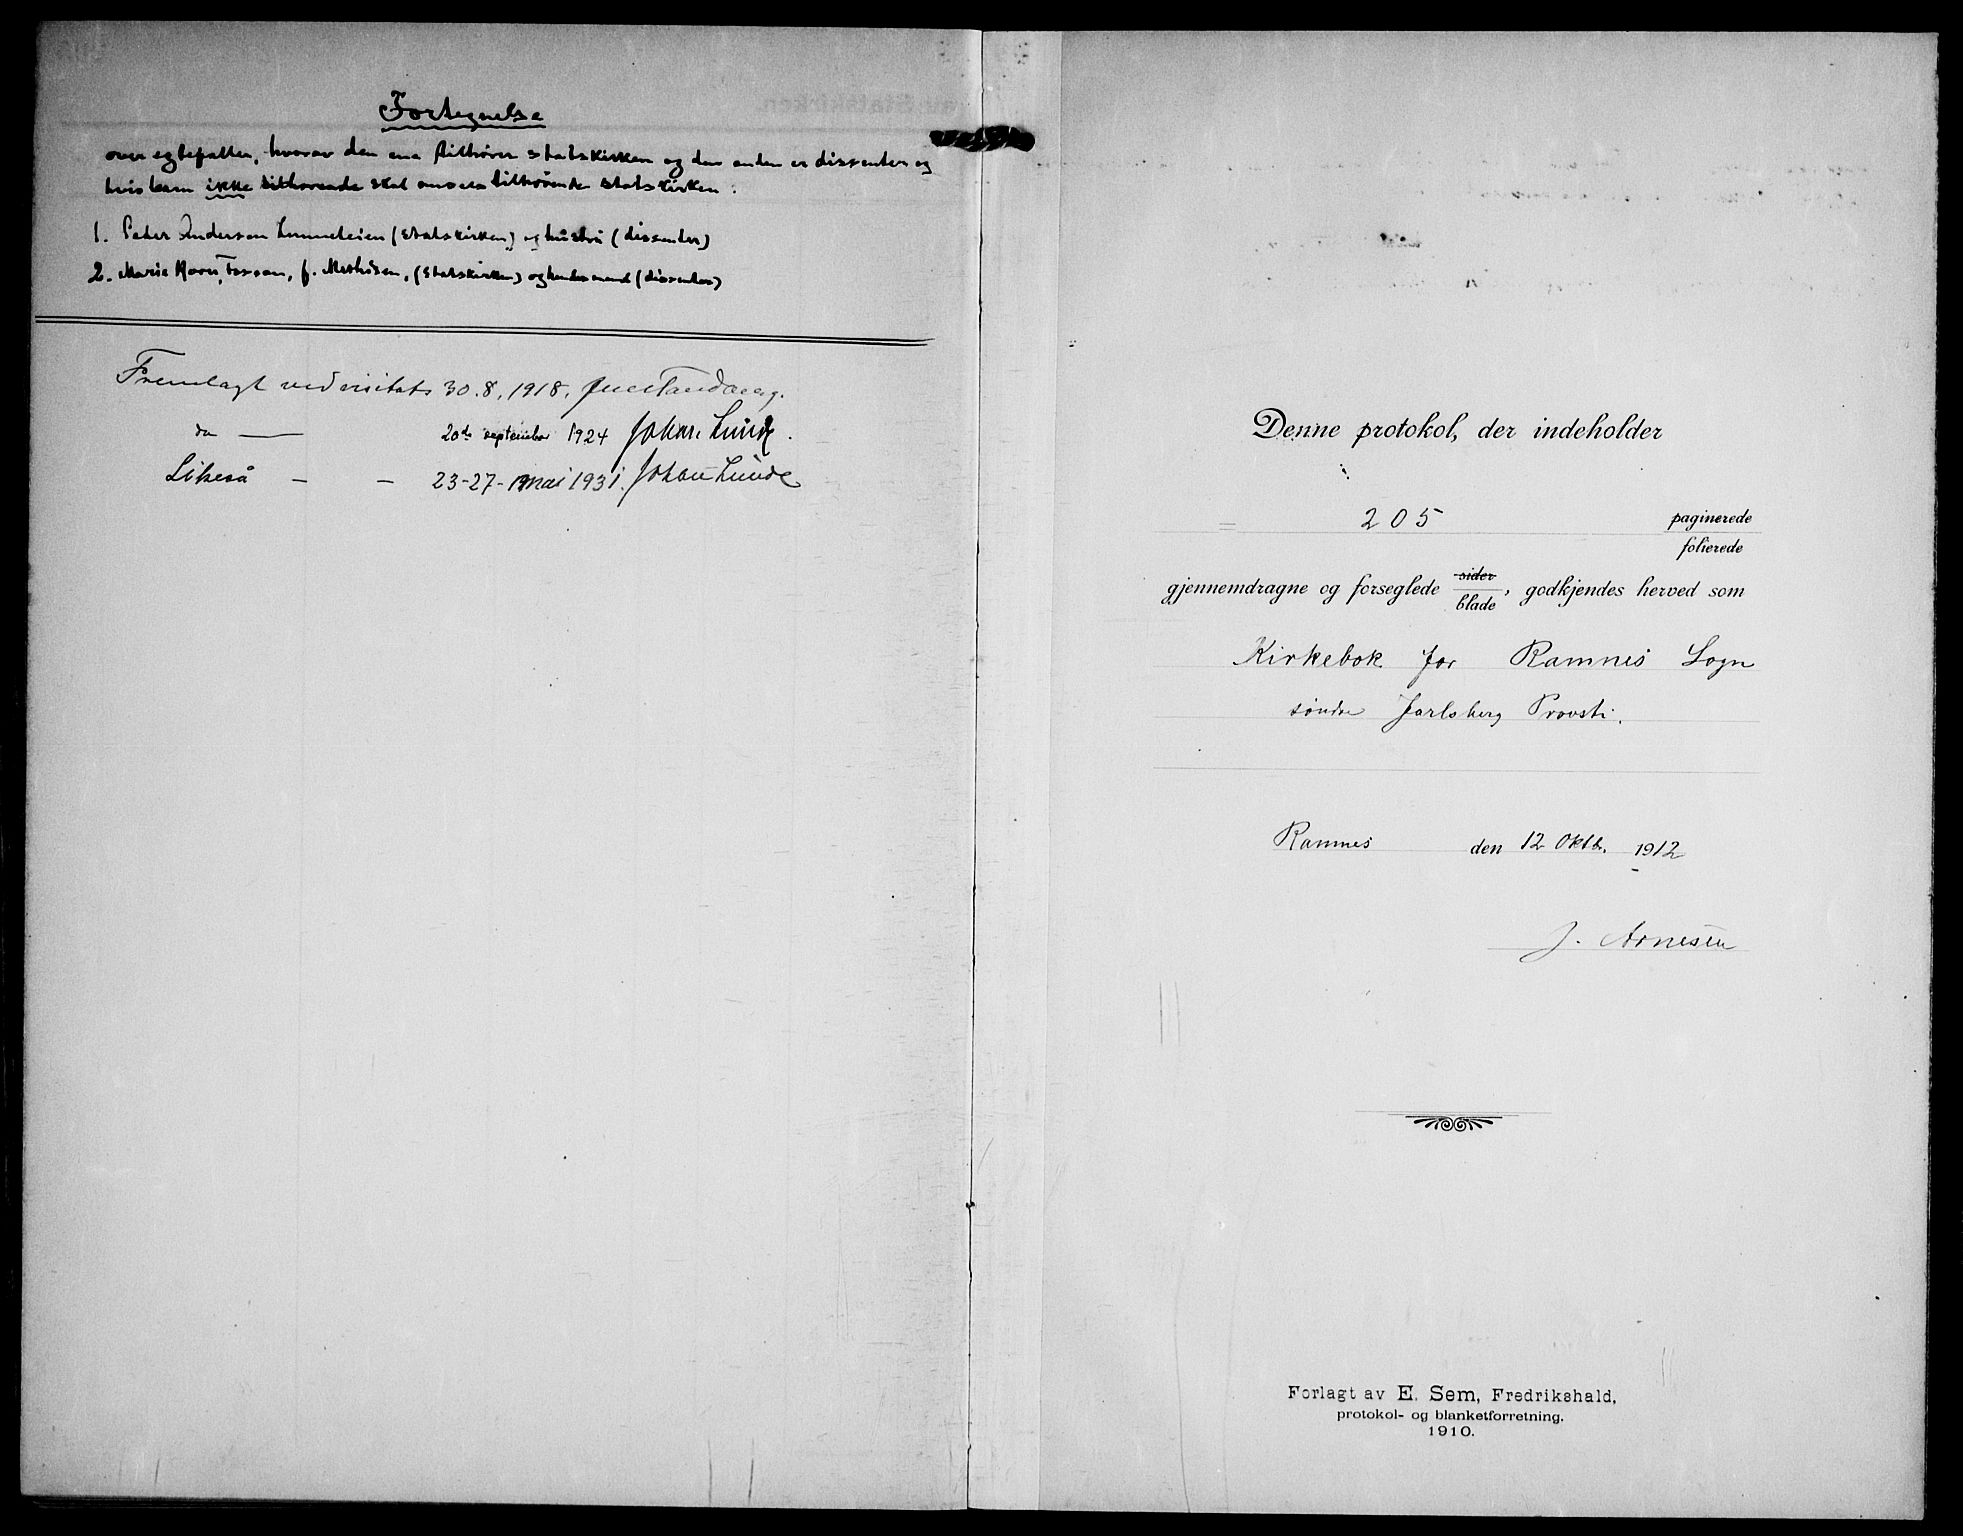 Fortegnelse
over egtefæller, hvorav den ene tilhører statskirken og den anden er dissenter og
hvis barn ikke skal ansees tilhørende statskirken:
1. Peder Anderson (Statskirken) og hustru (dissenter)
2. Marie f. Mathisen, (Statskirken) og hendes mand (dissenter)
Fremlagt ved visitats 30.8.1918. Jens Tandberg.
do — 20de september 1924 Johan Lunde.
Likeså - - 23-27- mai 1931. Johan Lunde
Denne protokol, der indeholder
= 205 paginerede
folierede
gjennemdragne og forseglede sider
blade, godkjendes herved som
Kirkebok for Ramnes Sogn
søndre Jarlsberg Provsti.
Ramnes den 12 Oktb. 1912
J. Arnesen
Forlagt av E. Sem, Fredrikshald,
protokol- og blanketforretning.
1910.